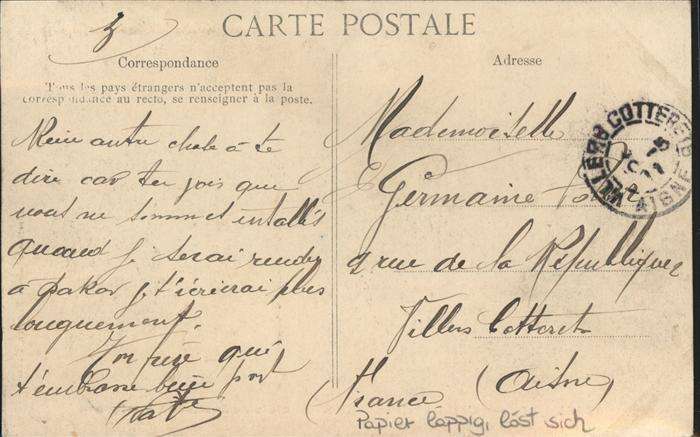 3
CARTE POSTALE
Correspondance
Adresse
Tous les pays étrangers n'acceptent pas la
correspondance au recto, se renseigner à la poste.
Rien autre chose à te
dire car tu vois que
nous ne sommes installés
quand je serai rendu
à Dakar je t'écrirai plus
longuement.
Ton qui
t'embrasse bien fort
Mademoiselle
Germaine
9 rue de la République
Villers Cotterets
France (Aisne)
VILLERS-COTTERETS
AISNE
Papier läppig, löst sich